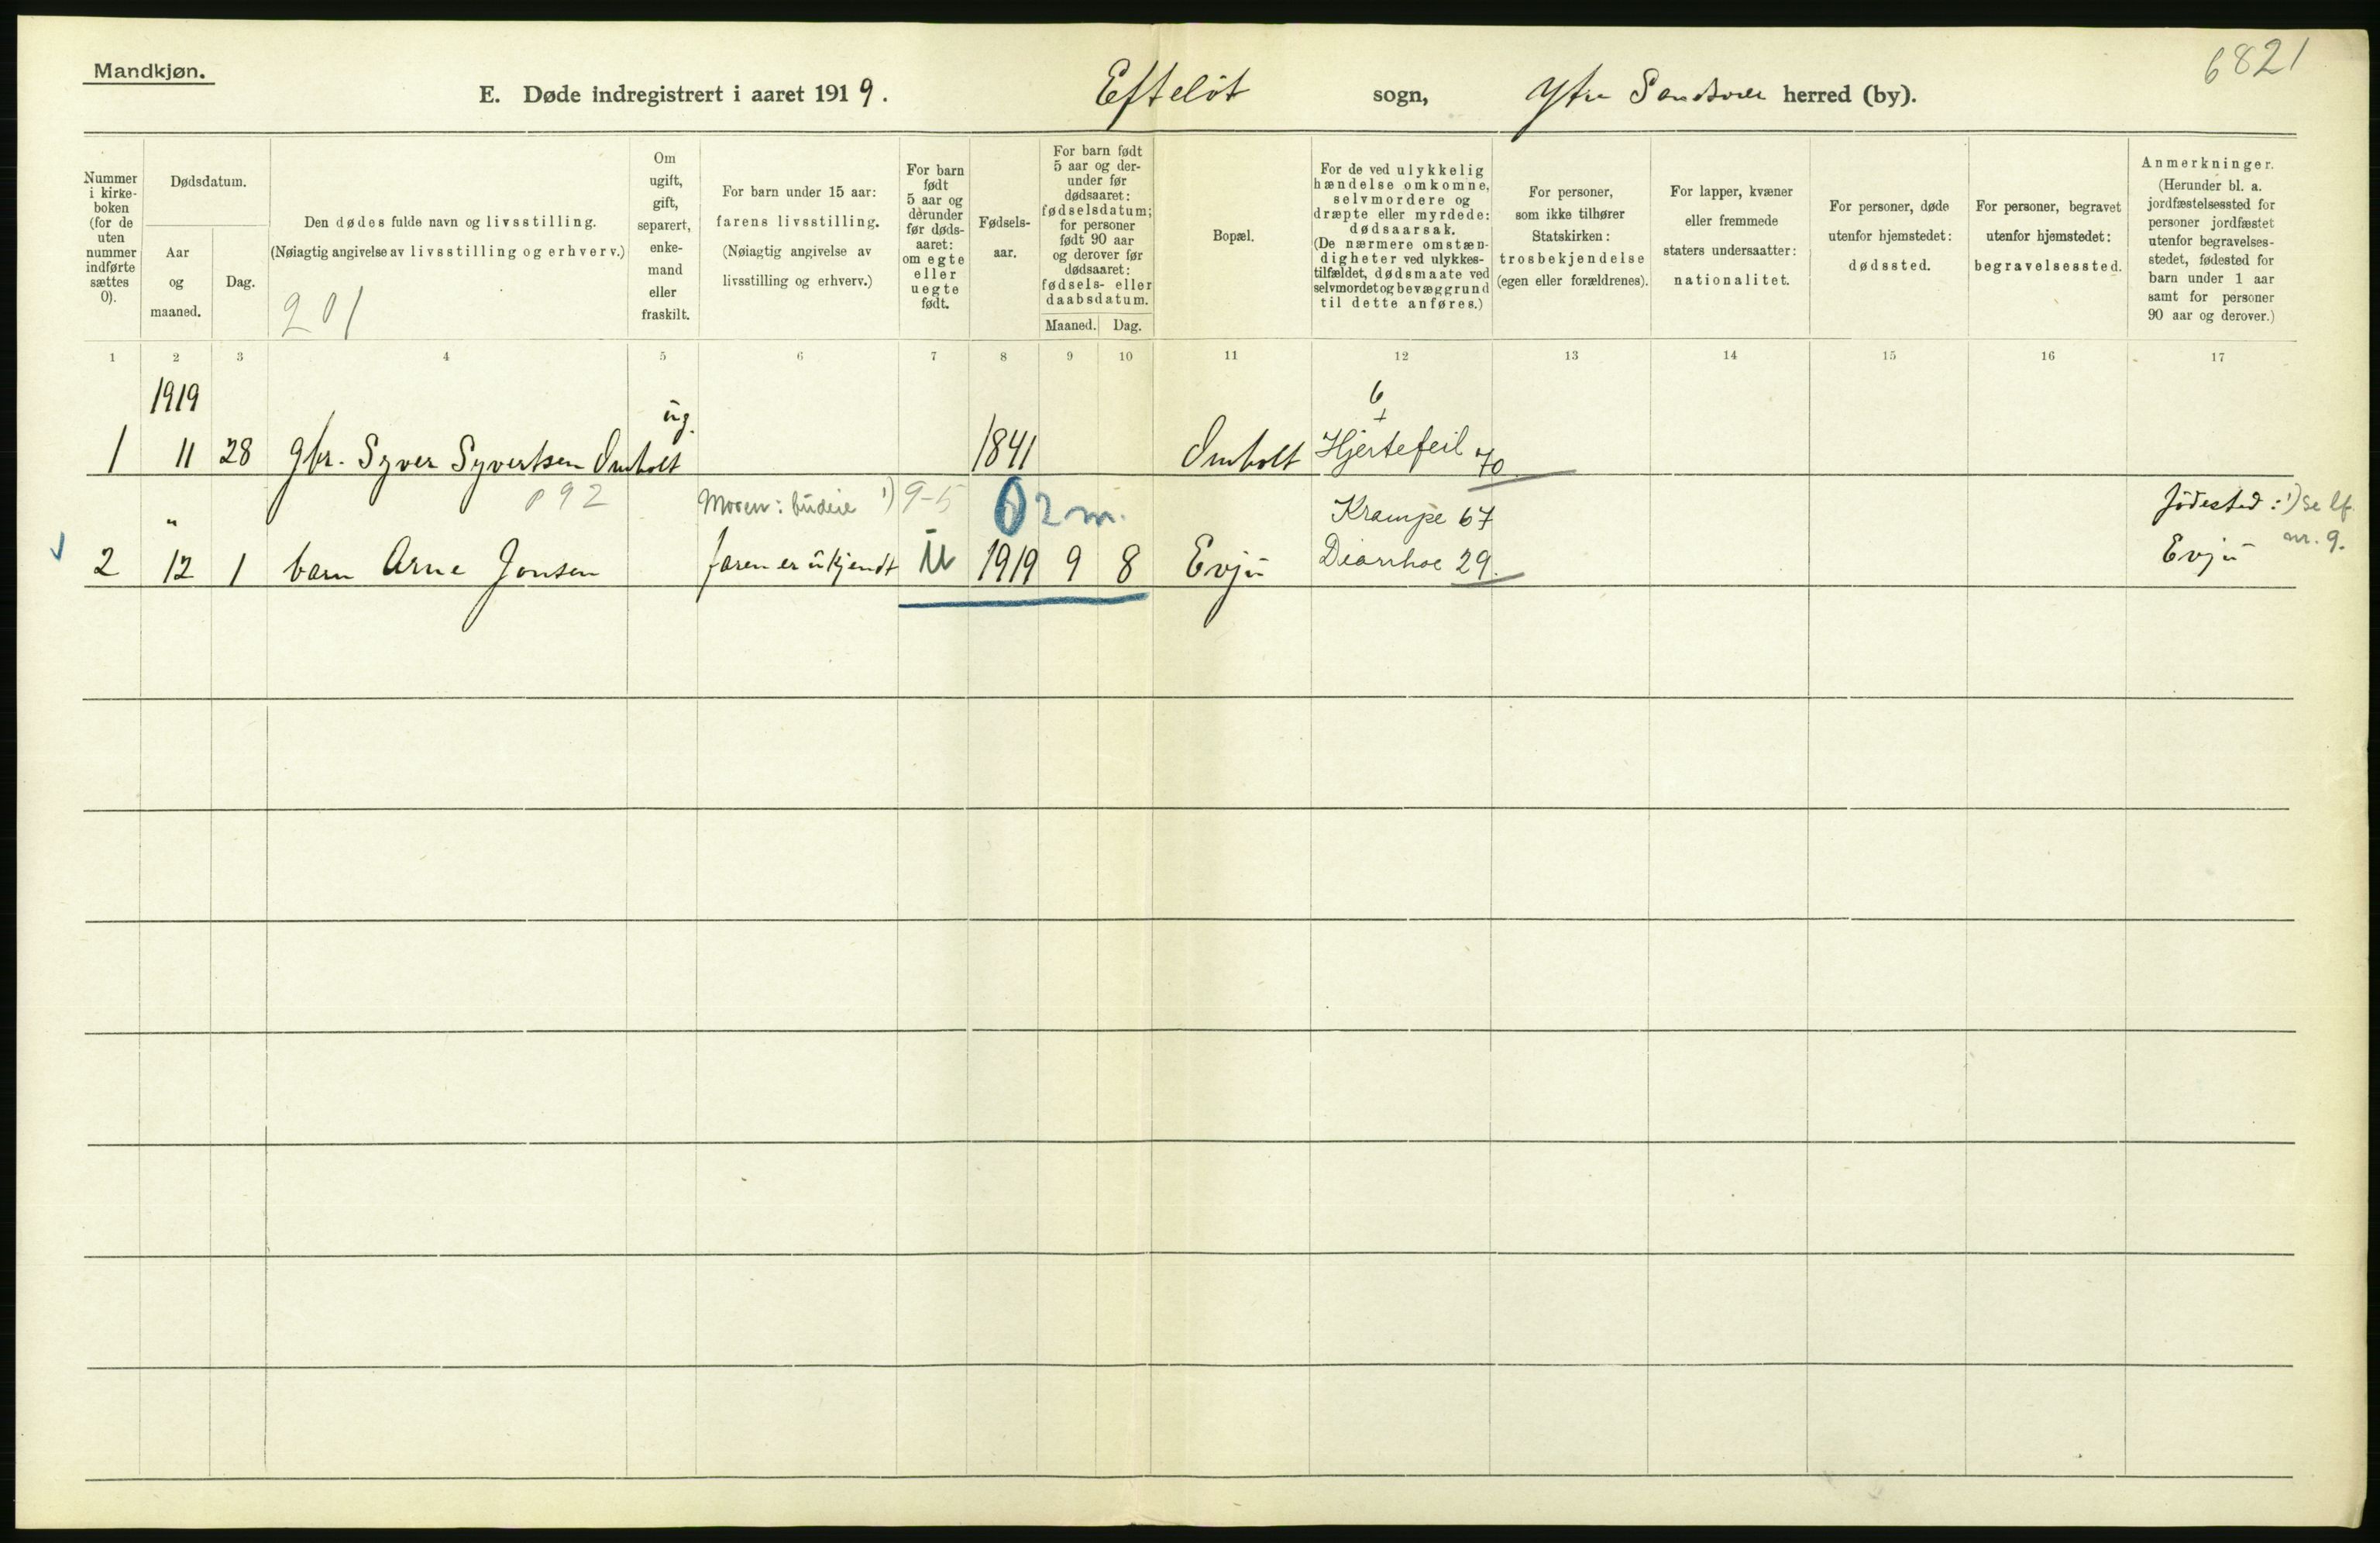 Mandkjøn.
6821
E. Døde indregistrert i aaret 1919. Efteløt sogn, Ytre Sandsvær herred (by).
Nummer i kirkeboken (for de uten nummer indførte sættes 0).
Dødsdatum.
Aar og maaned.
Dag.
Den dødes fulde navn og livsstilling.
(Nøiagtig angivelse av livsstilling og erhverv.)
201
Om ugift, gift, separert, enkemand eller fraskilt.
For barn under 15 aar:
farens livsstilling.
(Nøiagtig angivelse av livsstilling og erhverv.)
For barn født 5 aar og derunder før dødsaaret: om egte eller uegte født.
Fødselsaar.
For barn født 5 aar og derunder før dødsaaret: fødselsdatum; for personer født 90 aar og derover før dødsaaret: fødsels- eller daabsdatum.
Maaned. Dag.
Bopæl.
For de ved ulykkelig hændelse omkomne, selvmordere og dræpte eller myrdede: dødsaarsak.
(De nærmere omstændigheter ved ulykkestilfældet, dødsmaate ved selvmordet og bevæggrund til dette anføres.)
For personer, som ikke tilhører Statskirken: trosbekjendelse (egen eller forældrenes).
For lapper, kvæner eller fremmede staters undersaatter: nationalitet.
For personer, døde utenfor hjemstedet: dødssted.
For personer, begravet utenfor hjemstedet: begravelsessted.
Anmerkninger.
(Herunder bl. a. jordfæstelsessted for personer jordfæstet utenfor begravelsesstedet, fødested for barn under 1 aar samt for personer 90 aar og derover.)
1 2 3 4 5 6 7 8 9 10 11 12 13 14 15 16 17
1919 6
ug.
1 11 28 gbr. Syver Syvertsen Omholt 1841 Omholt Hjertefeil 70
092 Moren: budeie 1) 9-5 0 2 m. Krampe 67 Födested: 1) se lf.
" nr. 9.
2 12 1 barn Arne Jonsen faren er ukjendt U 1919 9 8 Evju Diarrhoe 29. Evju